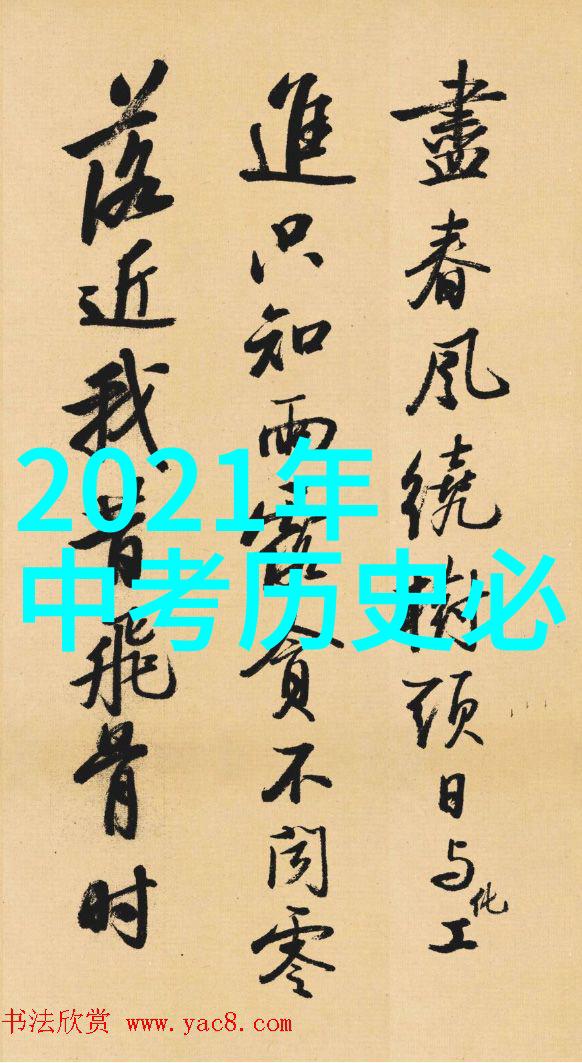 盡春風繞樹頭日与化工
進只知雨露貪不聞零
落近我昔飛骨时
2021年
中考历史必
书法欣赏 www.yac8.com